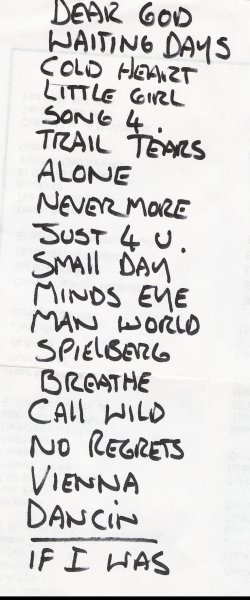 DEAR GOD
WAITING DAYS
COLD HEART
LITTLE GIRL
SONG 4.
TRAIL TEARS
ALONE
NEVERMORE
JUST 4 U.
SMAll DAY
MINDS EYE
MAN WORLD
SPIELBERG
BREATHE
CAll WILD
NO REGRETS
VIENNA
DANCIN
IF I WAS